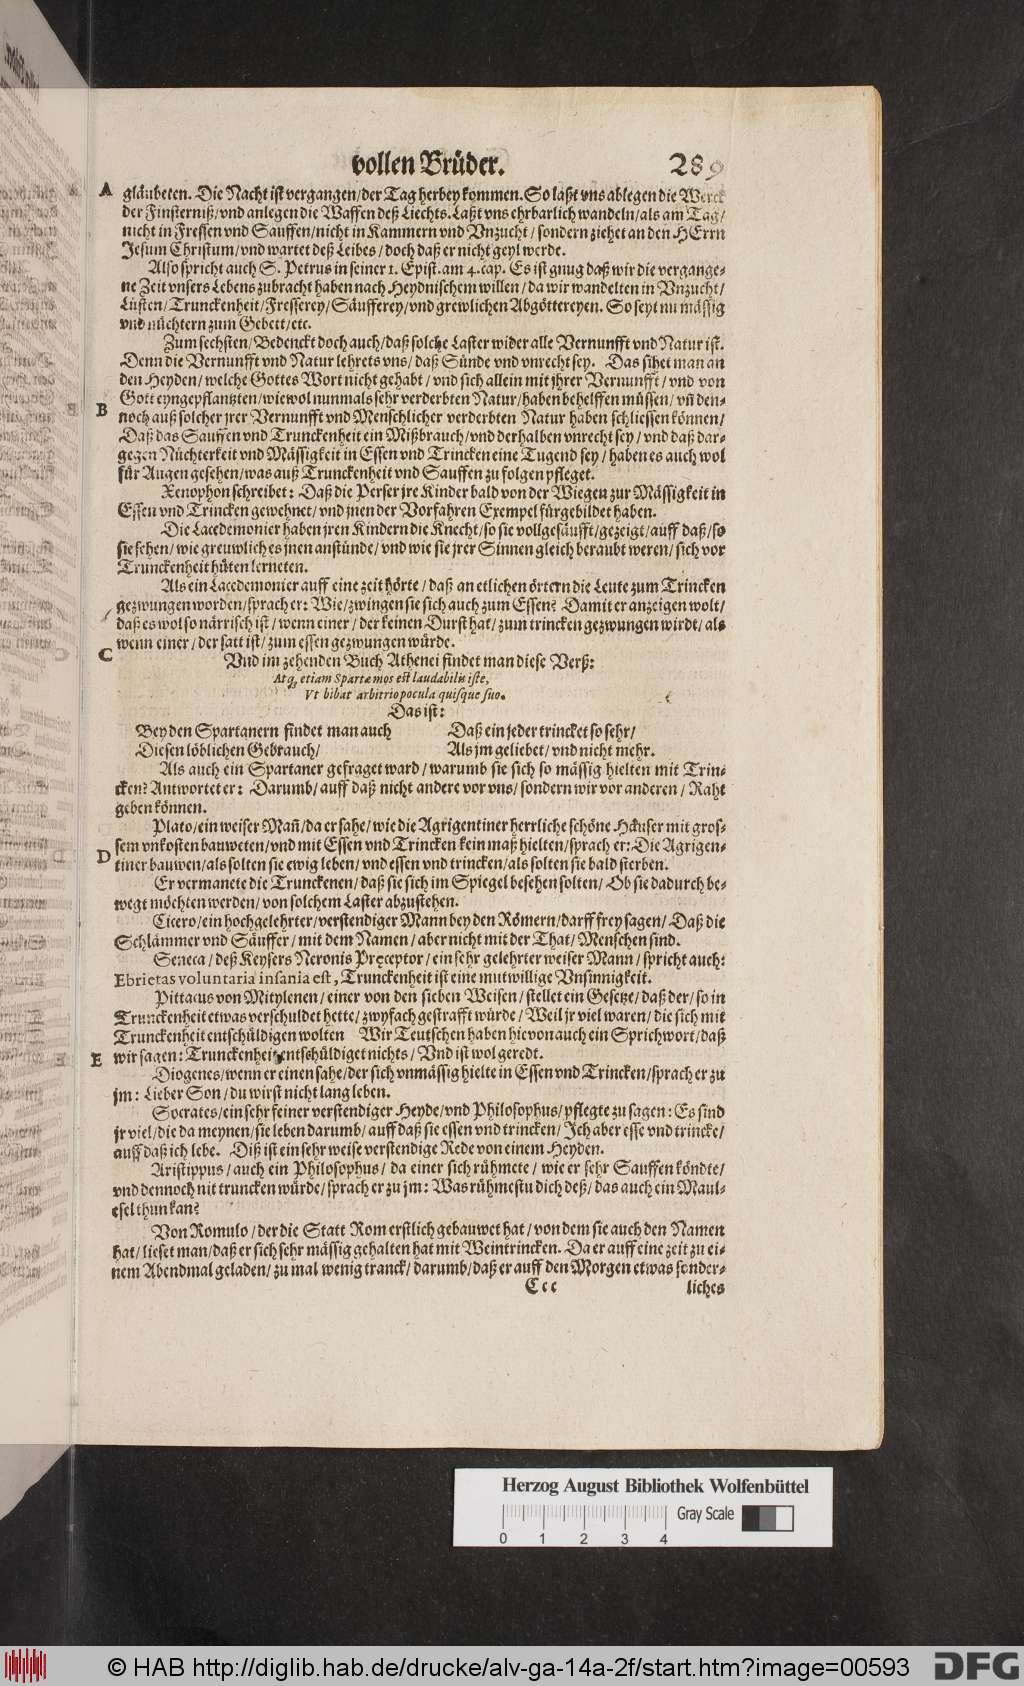 vollen Brüder. 289
A gläubeten. Die Nacht ist vergangen/ der Tag herbey kommen. So laßt vns ablegen die Werck
der Finsterniß/ vnd anlegen die Waffen deß Liechts. Laßt vns ehrbarlich wandeln/ als am Tag/
nicht in Fressen vnd Sauffen/ nicht in Kammern vnd Vnzucht/ sondern ziehet an den HErrn
Jesum Christum/ vnd wartet deß Leibes/ doch daß er nicht geyl werde.
Also spricht auch S. Petrus in seiner 1. Epist. am 4. cap. Es ist gnug daß wir die vergange-
ne Zeit vnsers Lebens zubracht haben nach Heydnischem willen/ da wir wandelten in Vnzucht/
Lüsten/ Trunckenheit/ Fresserey/ Säufferey/ vnd grewlichen Abgöttereyen. So seyt nu mässig
vnd nüchtern zum Gebett/ etc.
Zum sechsten/ Bedenckt doch auch/ daß solche Laster wider alle Vernunfft vnd Natur ist.
Denn die Vernunfft vnd Natur lehrets vns/ daß Sünde vnd vnrecht sey. Das sihet man an
den Heyden/ welche Gottes Wort nicht gehabt/ vnd sich allein mit jhrer Vernunfft/ vnd von
B Gott eyngepflantzten/ wiewol nunmals sehr verderbten Natur/ haben behelffen müssen/ vn̄ den-
noch auß solcher jrer Vernunfft vnd Menschlicher verderbten Natur haben schliessen können/
Daß das Sauffen vnd Trunckenheit ein Mißbrauch/ vnd derhalben vnrecht sey/ vnd daß dar-
gegen Nüchterkeit vnd Mässigkeit in Essen vnd Trincken eine Tugend sey/ haben es auch wol
für Augen gesehen/ was auß Trunckenheit vnd Sauffen zu folgen pfleget.
Xenophon schreibet: Daß die Perser jre Kinder bald von der Wiegen zur Mässigkeit in
Essen vnd Trincken gewehnet/ vnd jnen der Vorfahren Exempel fürgebildet haben.
Die Lacedemonier haben jren Kindern die Knecht/ so sie vollgesäufft/ gezeigt/ auff daß/ so
sie sehen/ wie greuwlich es jnen anstünde/ vnd wie sie jrer Sinnen gleich beraubt weren/ sich vor
Trunckenheit hüten lerneten.
Als ein Lacedemonier auff eine zeit hörte/ daß an etlichen örtern die Leute zum Trincken
gezwungen worden/ sprach er: Wie/ zwingen sie sich auch zum Essen? Damit er anzeigen wolt/
daß es wol so närrisch ist/ wenn einer/ der keinen Durst hat/ zum trincken gezwungen wirdt/ als
wenn einer/ der satt ist/ zum essen gezwungen würde.
C Vnd im zehenden Buch Athenei findet man diese Verß:
Atq; etiam Spartæ mos est laudabilis iste,
Vt bibat arbitrio pocula quisque suo.
Das ist:
Bey den Spartanern findet man auch Daß ein jeder trincket so sehr/
Diesen löblichen Gebrauch/ Als jm geliebet/ vnd nicht mehr.
Als auch ein Spartaner gefraget ward/ warumb sie sich so mässig hielten mit Trin-
cken? Antwortet er: Darumb/ auff daß nicht andere vor vns/ sondern wir vor anderen/ Raht
geben können.
Plato/ ein weiser Man̄/ da er sahe/ wie die Agrigentiner herrliche schöne Häuser mit gros-
sem vnkosten bauweten/ vnd mit Essen vnd Trincken kein maß hielten/ sprach er: Die Agrigen-
D tiner bauwen/ als solten sie ewig leben/ vnd essen vnd trincken/ als solten sie bald sterben.
Er vermanete die Trunckenen/ daß sie sich im Spiegel besehen solten/ Ob sie dadurch be-
wegt möchten werden/ von solchem Laster abzustehen.
Cicero/ ein hochgelehrter/ verstendiger Mann bey den Römern/ darff frey sagen/ Daß die
Schlämmer vnd Säuffer/ mit dem Namen/ aber nicht mit der That/ Menschen sind.
Seneca/ deß Keysers Neronis Præceptor/ ein sehr gelehrter weiser Mann/ spricht auch:
Ebrietas voluntaria insania est, Trunckenheit ist eine mutwillige Vnsinnigkeit.
Pittacus von Mitylenen/ einer von den sieben Weisen/ stellet ein Gesetze/ daß der/ so in
Trunckenheit etwas verschuldet hette/ zwyfach gestrafft würde/ Weil jr viel waren/ die sich mit
Trunckenheit entschüldigen wolten Wir Teutschen haben hievon auch ein Sprichwort/ daß
E wir sagen: Trunckenheit entschüldiget nichts/ Vnd ist wol geredt.
Diogenes/ wenn er einen sahe/ der sich vnmässig hielte in Essen vnd Trincken/ sprach er zu
jm: Lieber Son/ du wirst nicht lang leben.
Socrates/ ein sehr feiner verstendiger Heyde/ vnd Philosophus/ pflegte zu sagen: Es sind
jr viel/ die da meynen/ sie leben darumb/ auff daß sie essen vnd trincken/ Ich aber esse vnd trincke/
auff daß ich lebe. Diß ist ein sehr weise verstendige Rede von einem Heyden.
Aristippus/ auch ein Philosophus/ da einer sich rühmete/ wie er sehr Sauffen köndte/
vnd dennoch nit truncken würde/ sprach er zu jm: Was rühmestu dich deß/ das auch ein Maul-
esel thun kan?
Von Romulo/ der die Statt Rom erstlich gebauwet hat/ von dem sie auch den Namen
hat/ lieset man/ daß er sich sehr mässig gehalten hat mit Weintrincken. Da er auff eine zeit zu ei-
nem Abendmal geladen/ zu mal wenig tranck/ darumb/ daß er auff den Morgen etwas sonder-
Ccc liches
Herzog August Bibliothek Wolfenbüttel
Gray Scale
0 1 2 3 4
© HAB http://diglib.hab.de/drucke/alv-ga-14a-2f/start.htm?image=00593
DFG